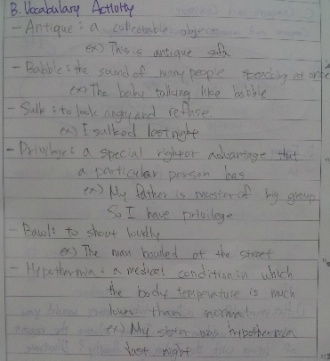 B. Vocabulary Activity
- Antique : a collectable object
ex) This is antique
- Babble : the sound of many people speaking at once
ex) The baby talking like babble
- Sulk : to look angry and refuse
ex) I sulked last night
- Privilege : a special right or advantage that
a particular person has
ex) My father is master of big group
So I have privilege
- Bawl : to shout loudly
ex) The man bawled at the street
- Hypothermia : a medical condition in which
the body temperature is much
lower than normal
ex) My sister was hypothermia
last night